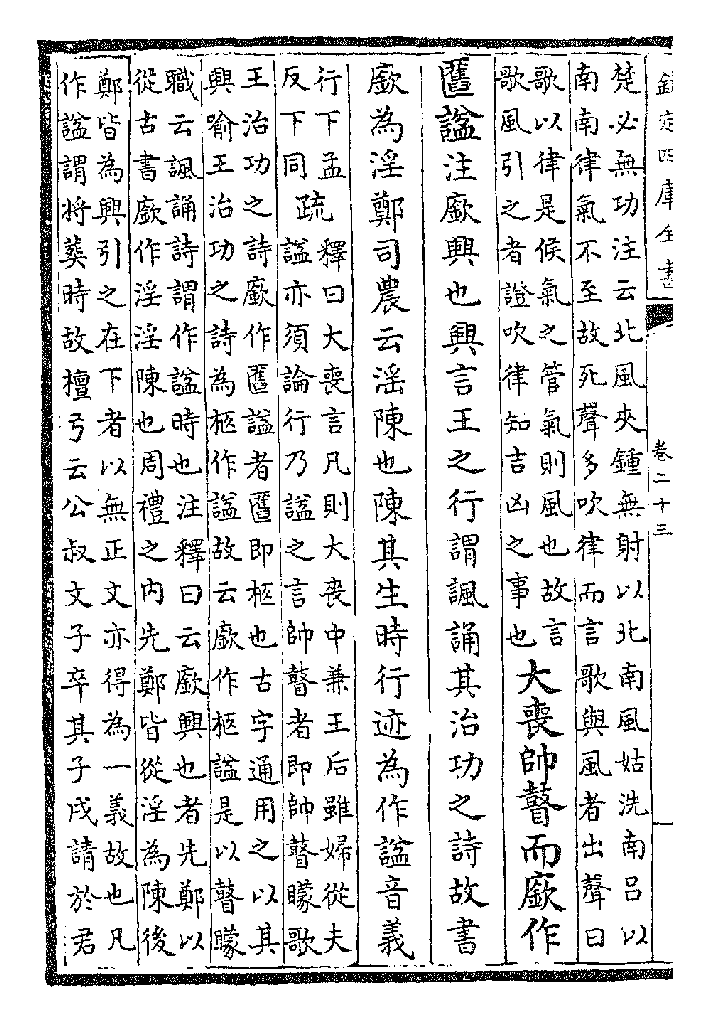 欽定四庫全書
卷二十三
楚必無功注云北風夾鍾無射以北南風姑洗南呂以
南南律氣不至故死聲多吹律而言歌與風者出聲曰
歌以律是候氣之管氣則風也故言
歌風引之者證吹律知吉凶之事也
大喪帥瞽而廞作
匶謚注廞興也興言王之行謂諷誦其治功之詩故書
廞為淫鄭司農云淫陳也陳其生時行迹為作謚音義
行下孟
反下同
疏
釋曰大喪言凡則大喪中兼王后雖婦從夫
謚亦須論行乃謚之言帥瞽者即帥瞽矇歌
王治功之詩廞作匶謚者匶即柩也古字通用之以其
興喻王治功之詩為柩作謚故云廞作柩謚是以瞽矇
職云諷誦詩謂作謚時也注釋曰云廞興也者先鄭以
從古書廞作淫淫陳也周禮之内先鄭皆從淫為陳後
鄭皆為興引之在下者以無正文亦得為一義故也凡
作謚謂将葬時故檀弓云公叔文子卒其子戍請於君